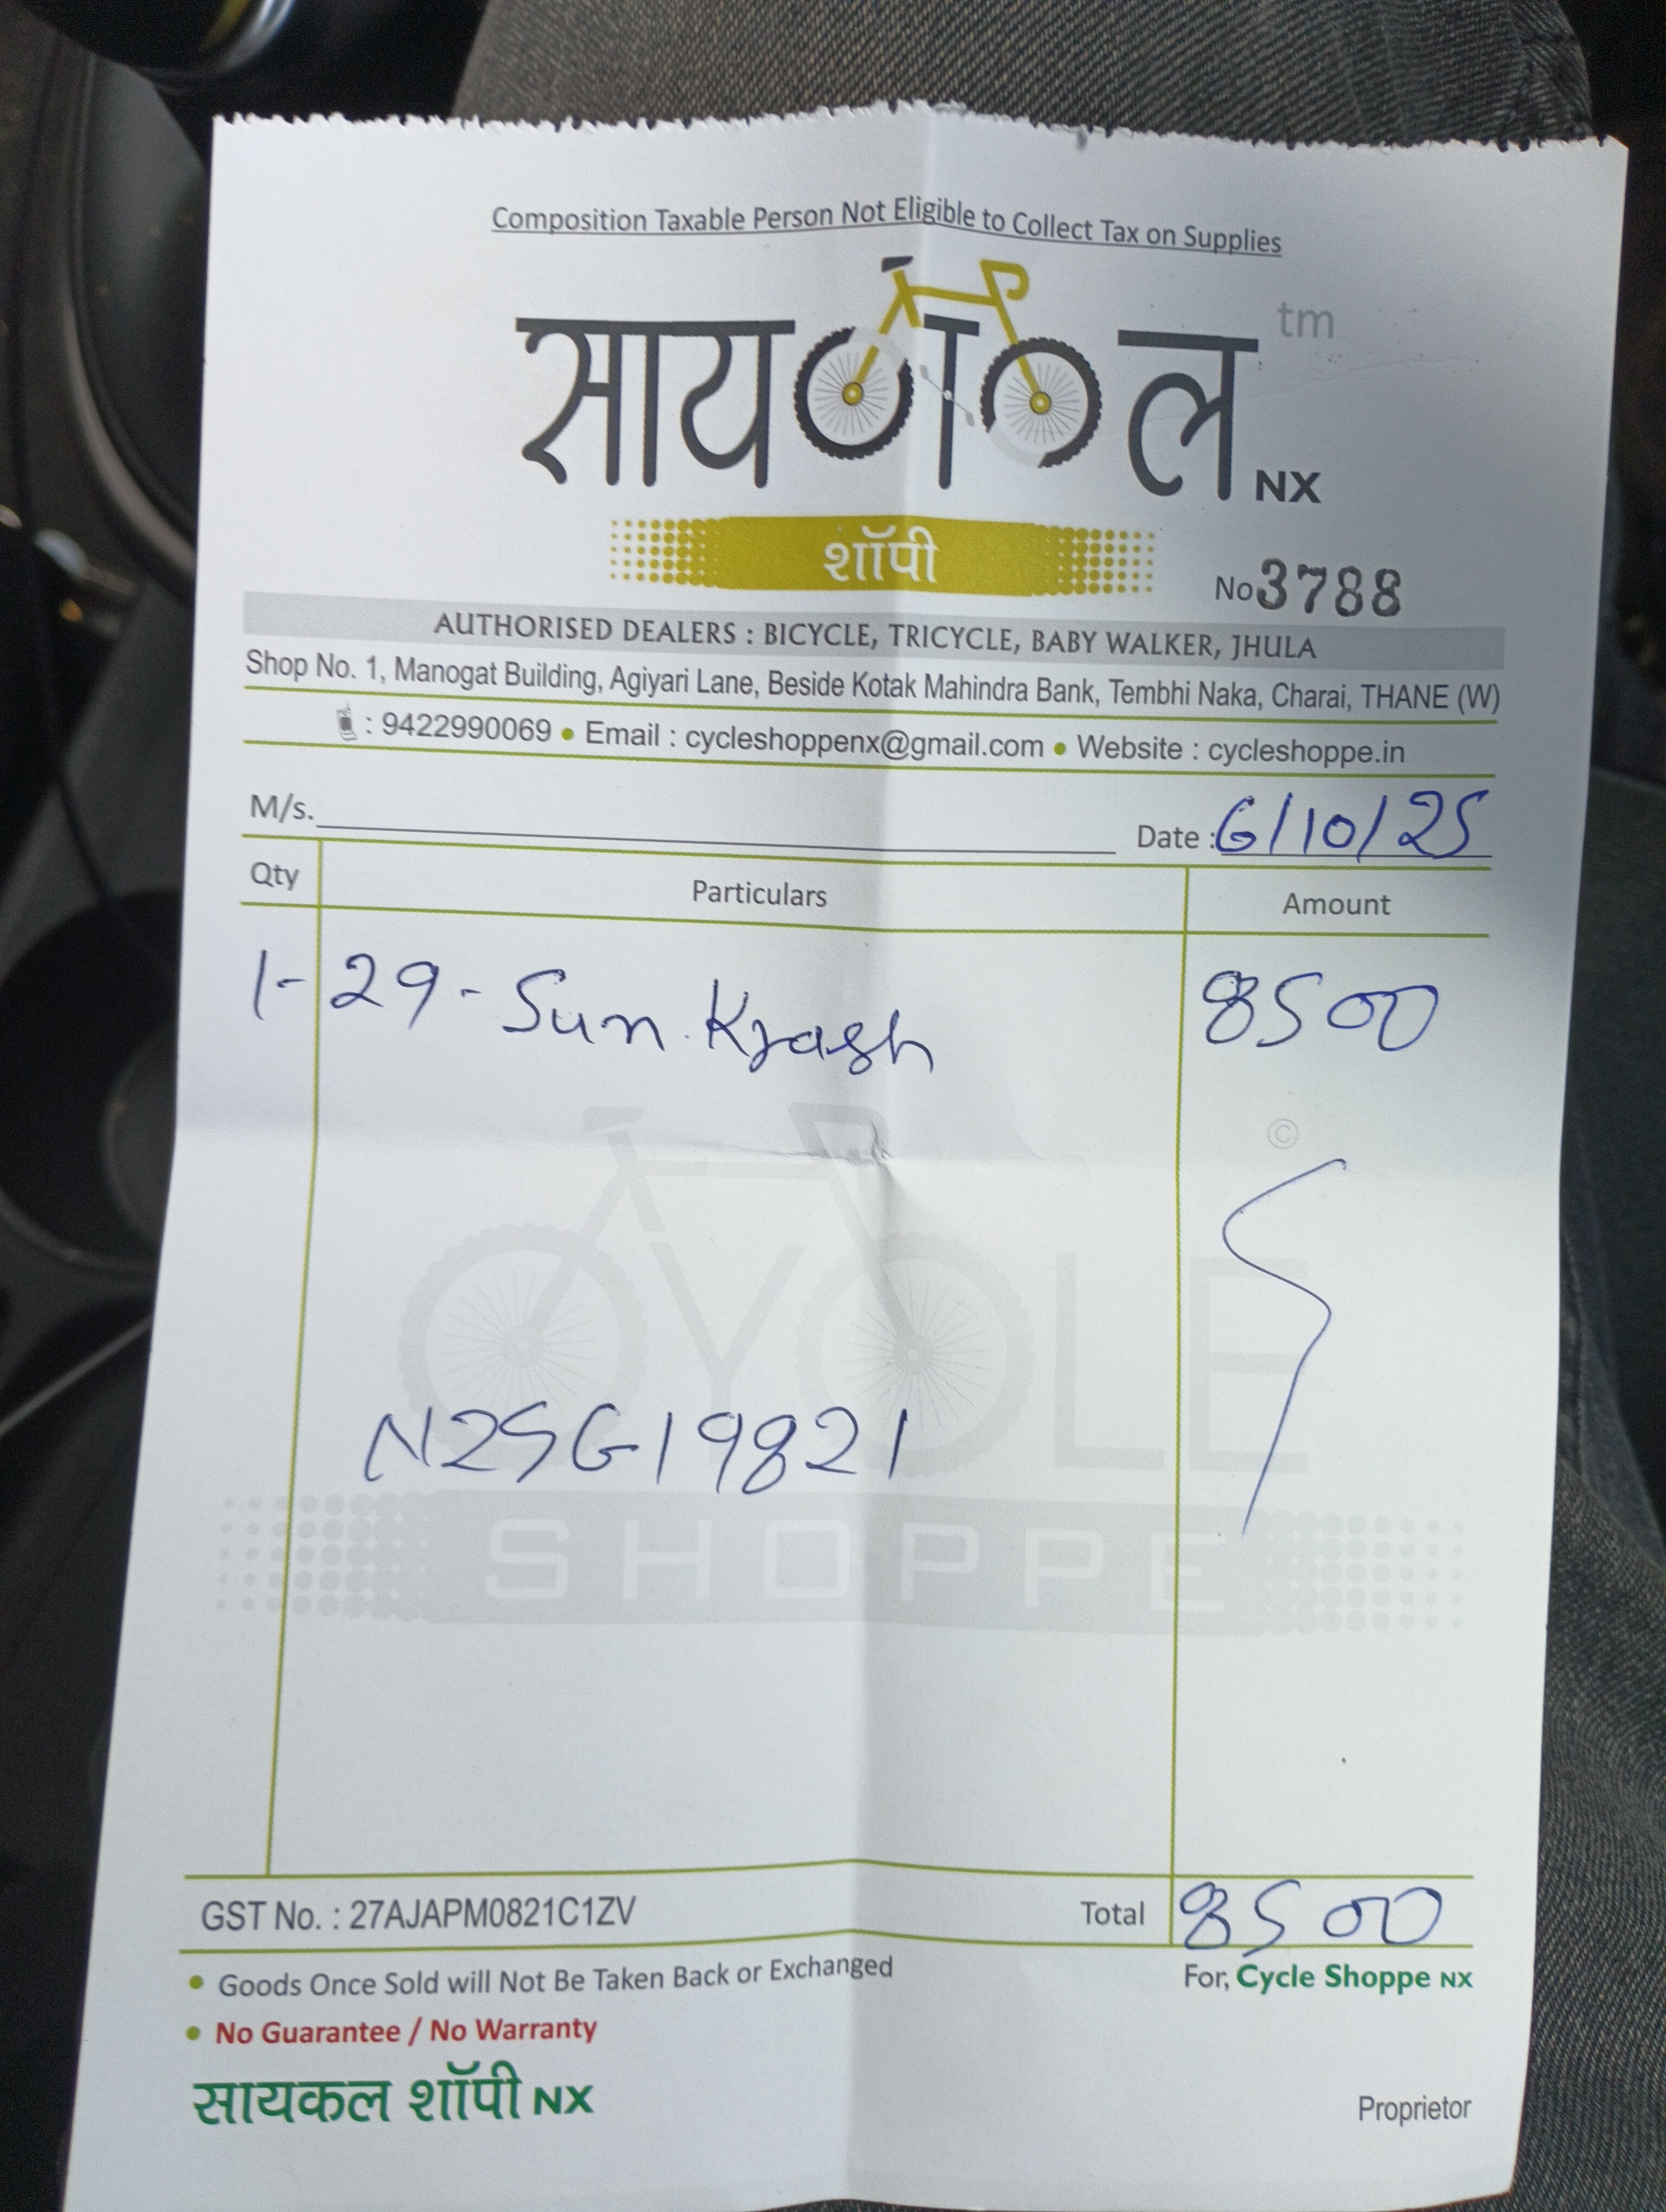 Composition Taxable Person Not Eligible to Collect Tax on Supplies
सायकल tm
NX
शॉपी
No 3788
AUTHORISED DEALERS : BICYCLE, TRICYCLE, BABY WALKER, JHULA
Shop No. 1, Manogat Building, Agiyari Lane, Beside Kotak Mahindra Bank, Tembhi Naka, Charai, THANE (W)
: 9422990069 • Email : cycleshoppenx@gmail.com • Website : cycleshoppe.in
M/s. Date : 6/10/25
Qty Particulars Amount
1- 29 - Sun Krash 8500
©
CYCLE
N25G19821
SHOPPE
GST No. : 27AJAPM0821C1ZV Total 8500
• Goods Once Sold will Not Be Taken Back or Exchanged
For, Cycle Shoppe NX
• No Guarantee / No Warranty
सायकल शॉपी NX
Proprietor